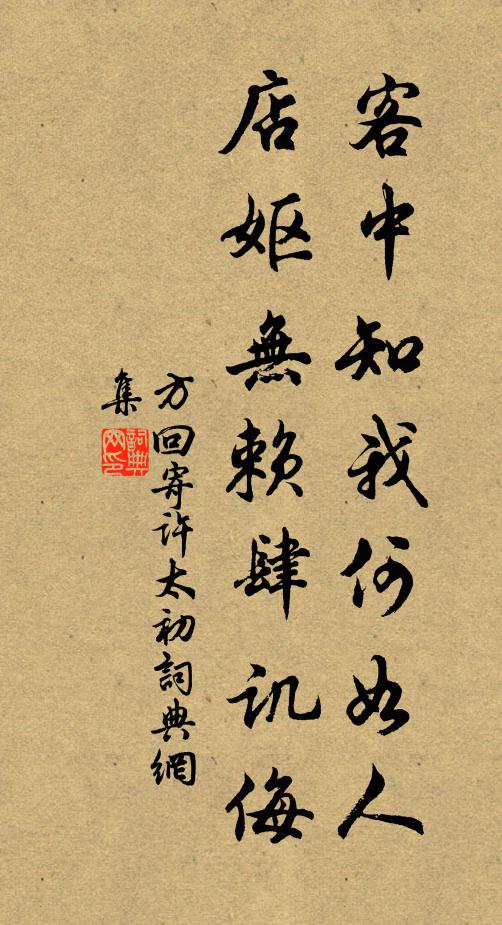 客中知我何如人
店妪無賴肆讥侮
方回寄许太初詞典網
集
詞典
网印